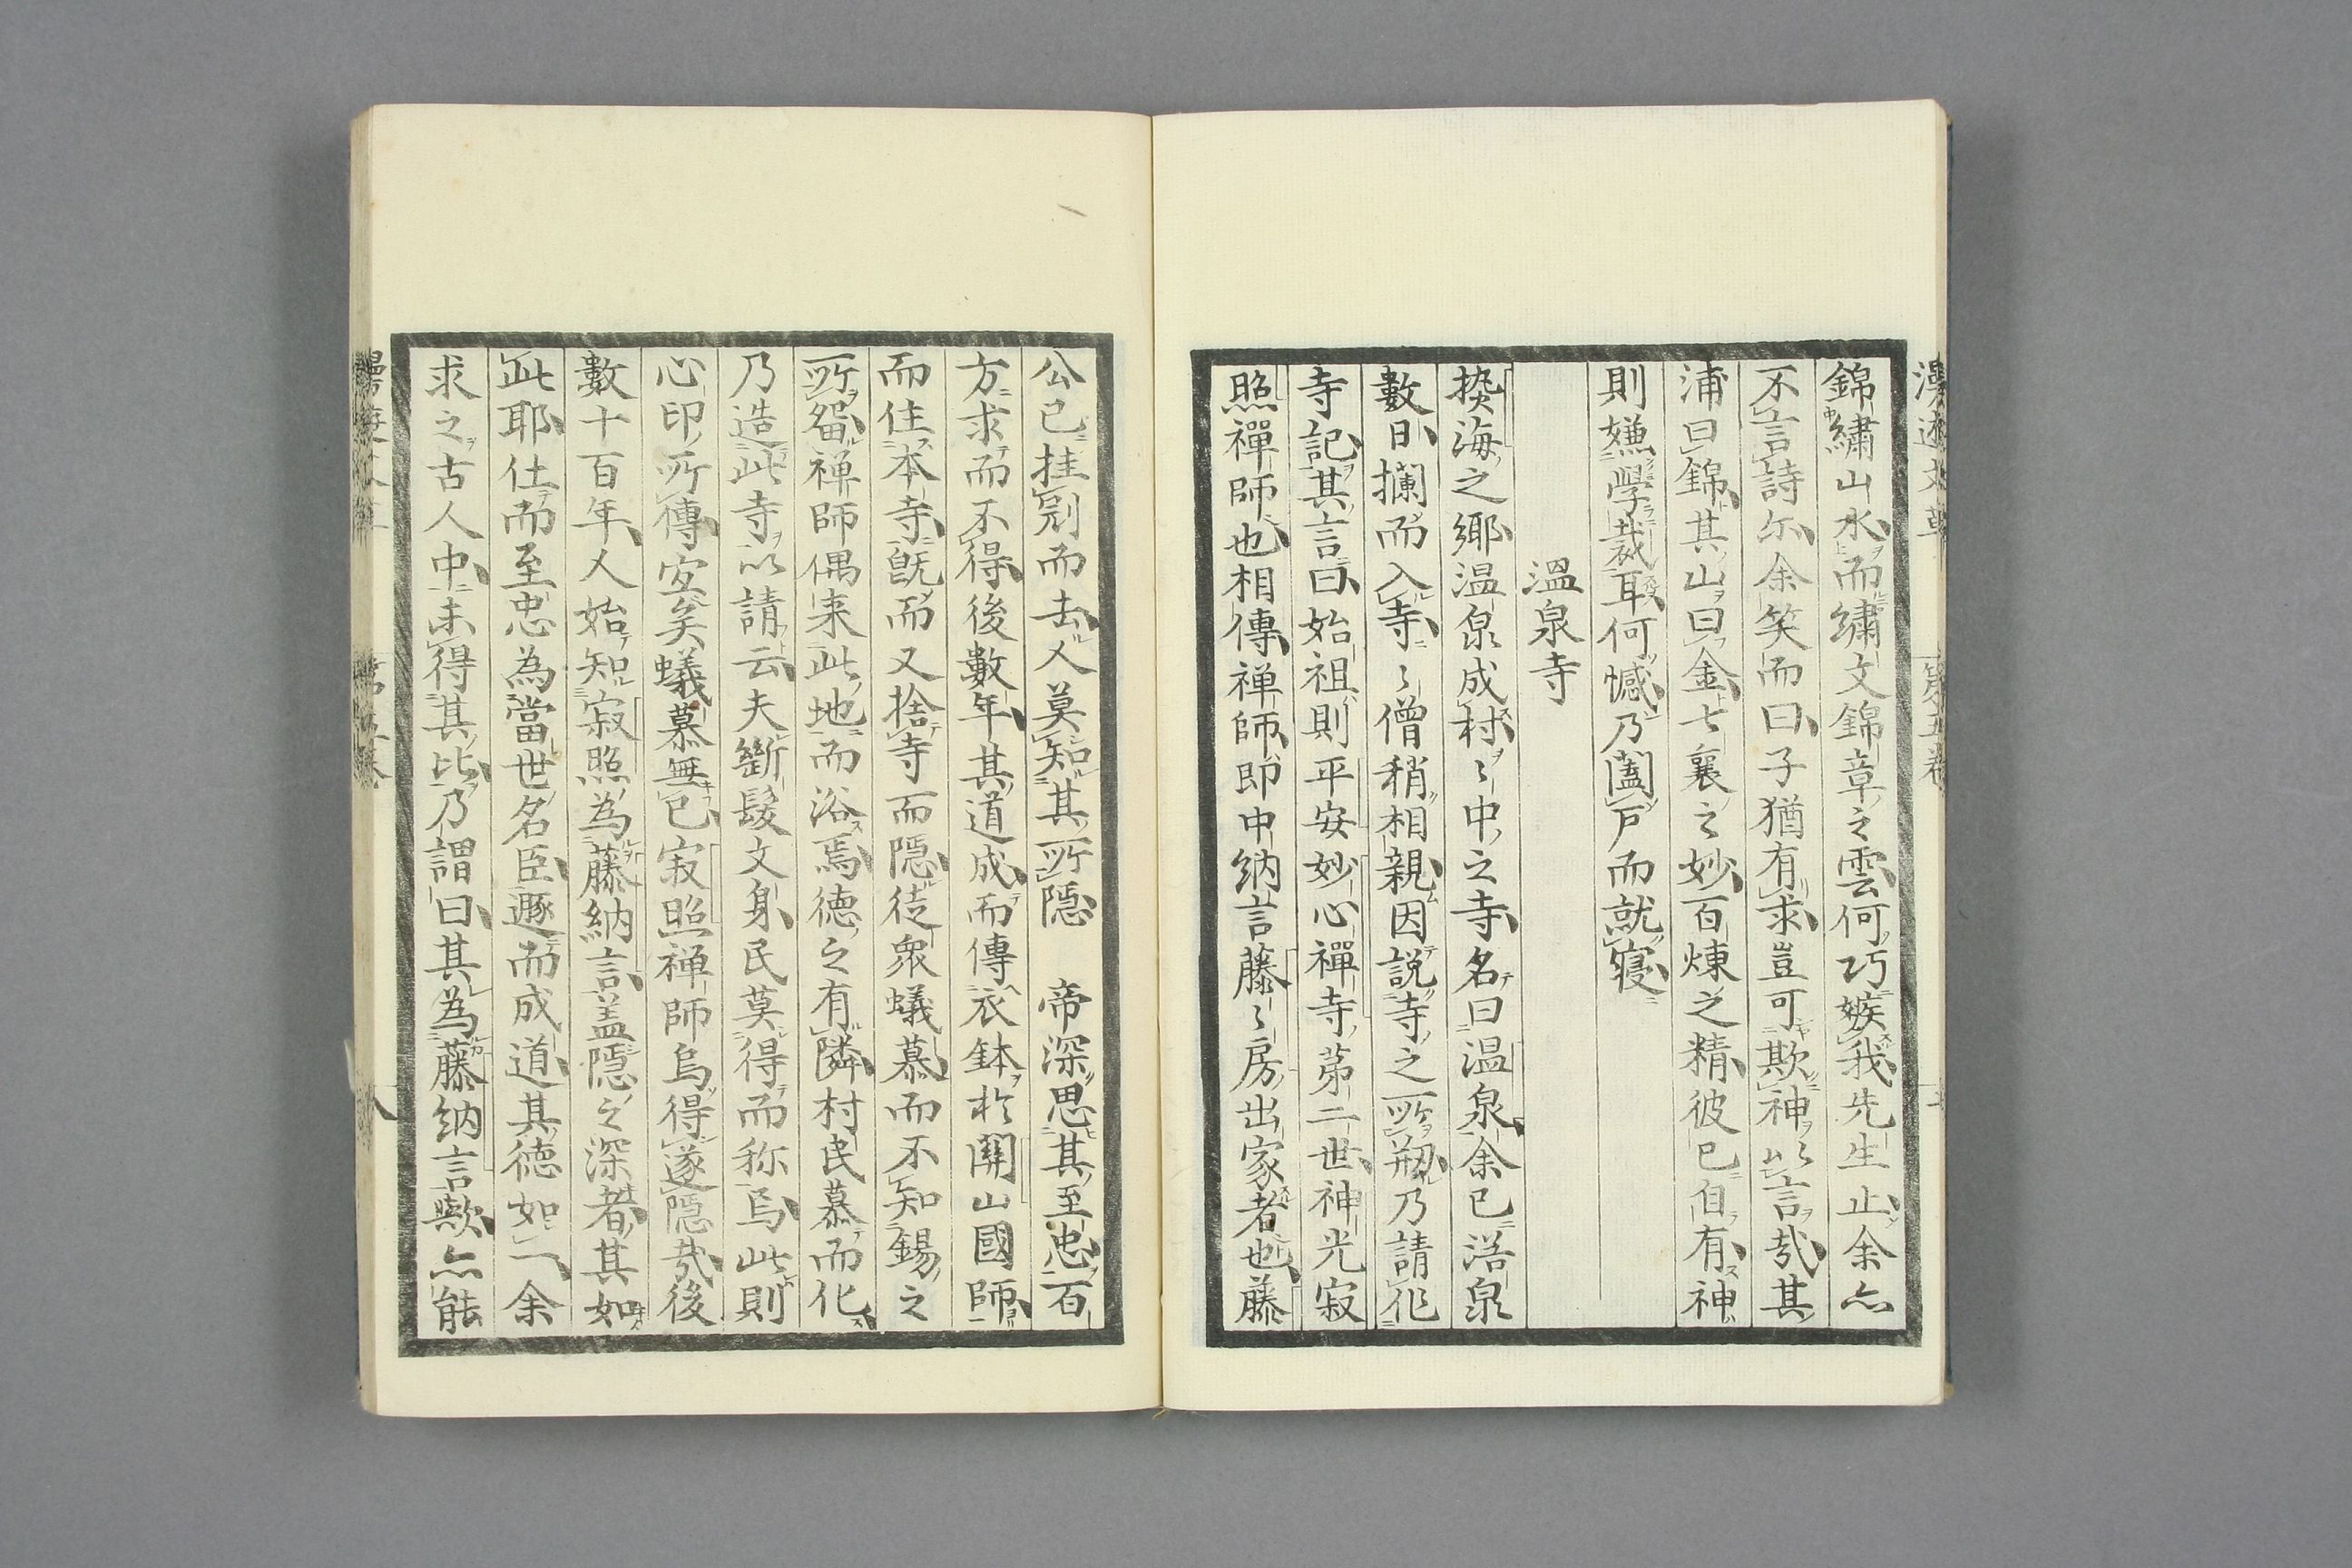 錦繡山水而繡文錦章之雲何巧嫉我先生止余亦
不言詩尓余笑而曰子猶有求豈可欺神以言哉其
浦曰錦其山曰金七襄之妙百煉之精彼已自有神
則嫌學裁耳何憾乃闔戸而就寢
溫泉寺
海之郷温泉成村〻中之寺名曰温泉余已浴泉
數日攔而入寺〻僧稍相親因說寺之所刱乃請作
寺記其言曰始祖則平安妙心禪寺第二世神光寂
照禪師也相傳禅師即中納言藤〻房出家者也藤
公已挂冠而去人莫知其所隱 帝深思其至忠石
方求而不得後數年其道成而傳衣鉢於關山國師
而住本寺既而又捨寺而隱徒衆蟻慕而不知錫之
所畱禅師偶来此地而浴焉德之有隣村民慕而化
乃造此寺以請云夫斷髮文身民莫得而称焉此則
心印所傳安矣蟻慕無已寂照禅師烏得遂隱哉後
數十百年人始知寂照為藤納言盖隱之深者其如
此耶仕而至忠為當世名臣遯而成道其德如一余
求之古人中未得其比乃謂曰其為藤納言歟亦能